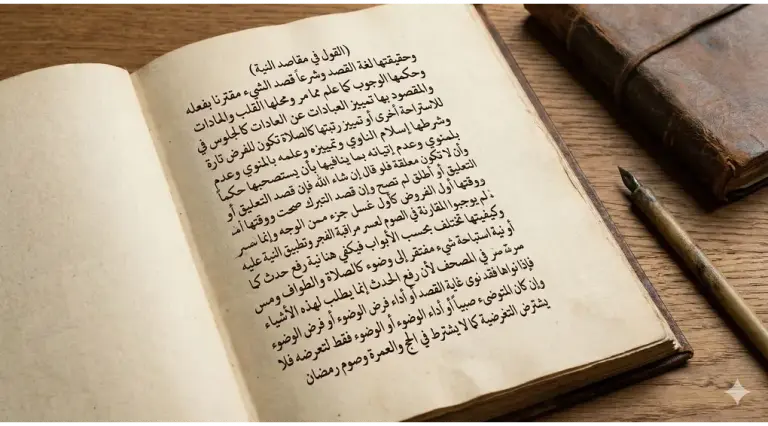 (القول في مقاصد النية)
وحقيقتها لغة القصد وشرعاً قصد الشيء مقترنا بفعله
وحكمها الوجوب كما علم مما مر ومحلها القلب والمادات
والمقصود بها تمييز العبادات عن العادات كالجلوس في
للاستراحة أخرى أو تمييز رتبتها كالصلاة تكون للفرض تارة
وشرطها إسلام الناوي وتمييزه وعلمه بالمنوي وعدم
بلمنوي وعدم إتيانه بما ينافيها بأن يستصحبها حكماً
وأن لا تكون معلقة فلو قال إن شاء الله فإن قصد التعليق أو
التعليق أو أطلق لم تصح وإن قصد التبرك صحت ووقتها أمـ
ووقتها أول الفروض كأول غسل جزء ممن الوجه وإنما
لم يوجبوا المقارنة في الصوم لعسر مراقبة الفجر وتطبيق النية عليه
وكيفيتها تختلف بحسب الأبواب فيكفي هنا نية رفع حدث كا
أو نية استباحة شيء مفتقر إلى وضوء كالصلاة والطواف ومس
في المصحف لأن رفع الحدث إنما يطلب لهذه الأشياء
فإذا نواها فقد نوى غاية القصد أو أداء فرض الوضوء أو فرض الوضوء
وإن كان المتوضىء صبياً أو أداء الوضوء أو الوضوء فقط لتعرضه فلا
يشترض التعرضية كما لا يشترط في الحج والعمرة وصوم رمضان